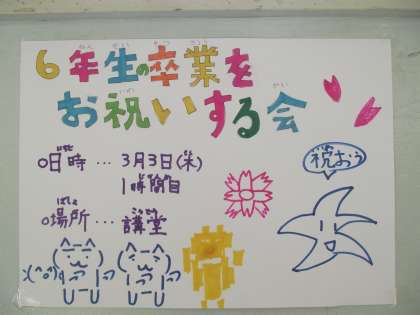 6年生の卒業を
お祝いする会
○日時…3月3日(木)
1時間目
○場所…講堂
祝おう